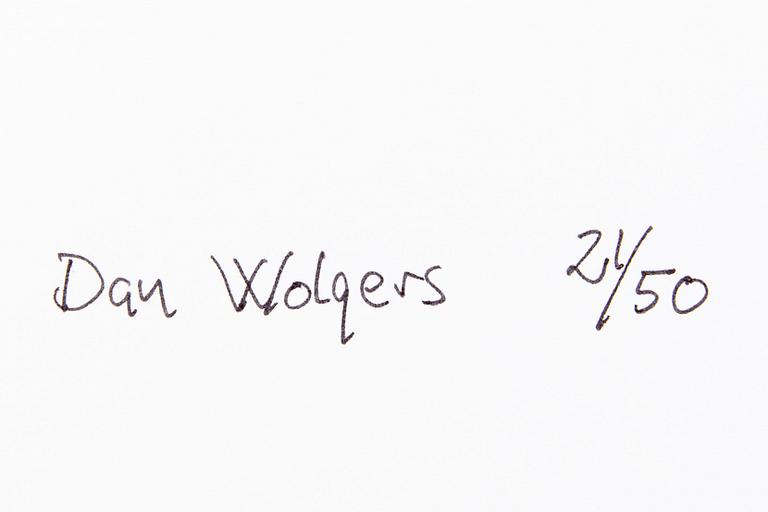 Dan Wolgers 21/50